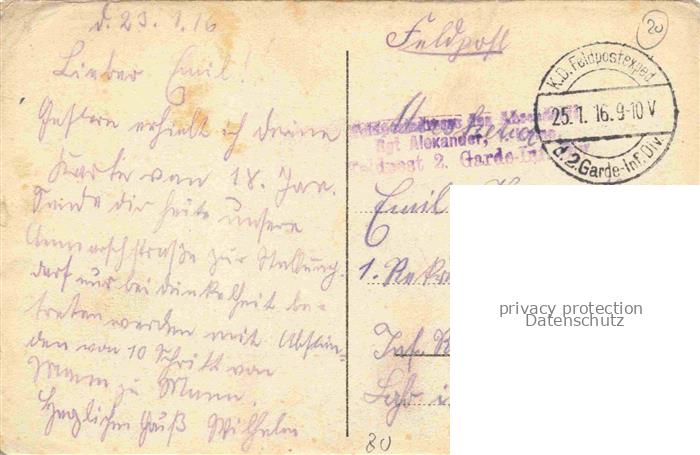 d. 23.1.16
Lieber Emil!
Gestern erhielt ich deine
Karte vom 18. Jan.
Sende dir heute unsere
Anmarschstraße zur Stellung.
darf nur bei dunkelheit be-
treten werden mit Abstän-
den von 10 Schritt von
Mann zu Mann.
Herzlichen Gruß Wilhelm
Feldpost
20
K.D. Feldpostexped.
25.1.16.9-10V
d. 2. Garde-Inf. Div.
Rgt Alexander,
Feldpost 2. Garde-Inf.
Emil
1. Rekr
Inf. R
80
privacy protection
Datenschutz